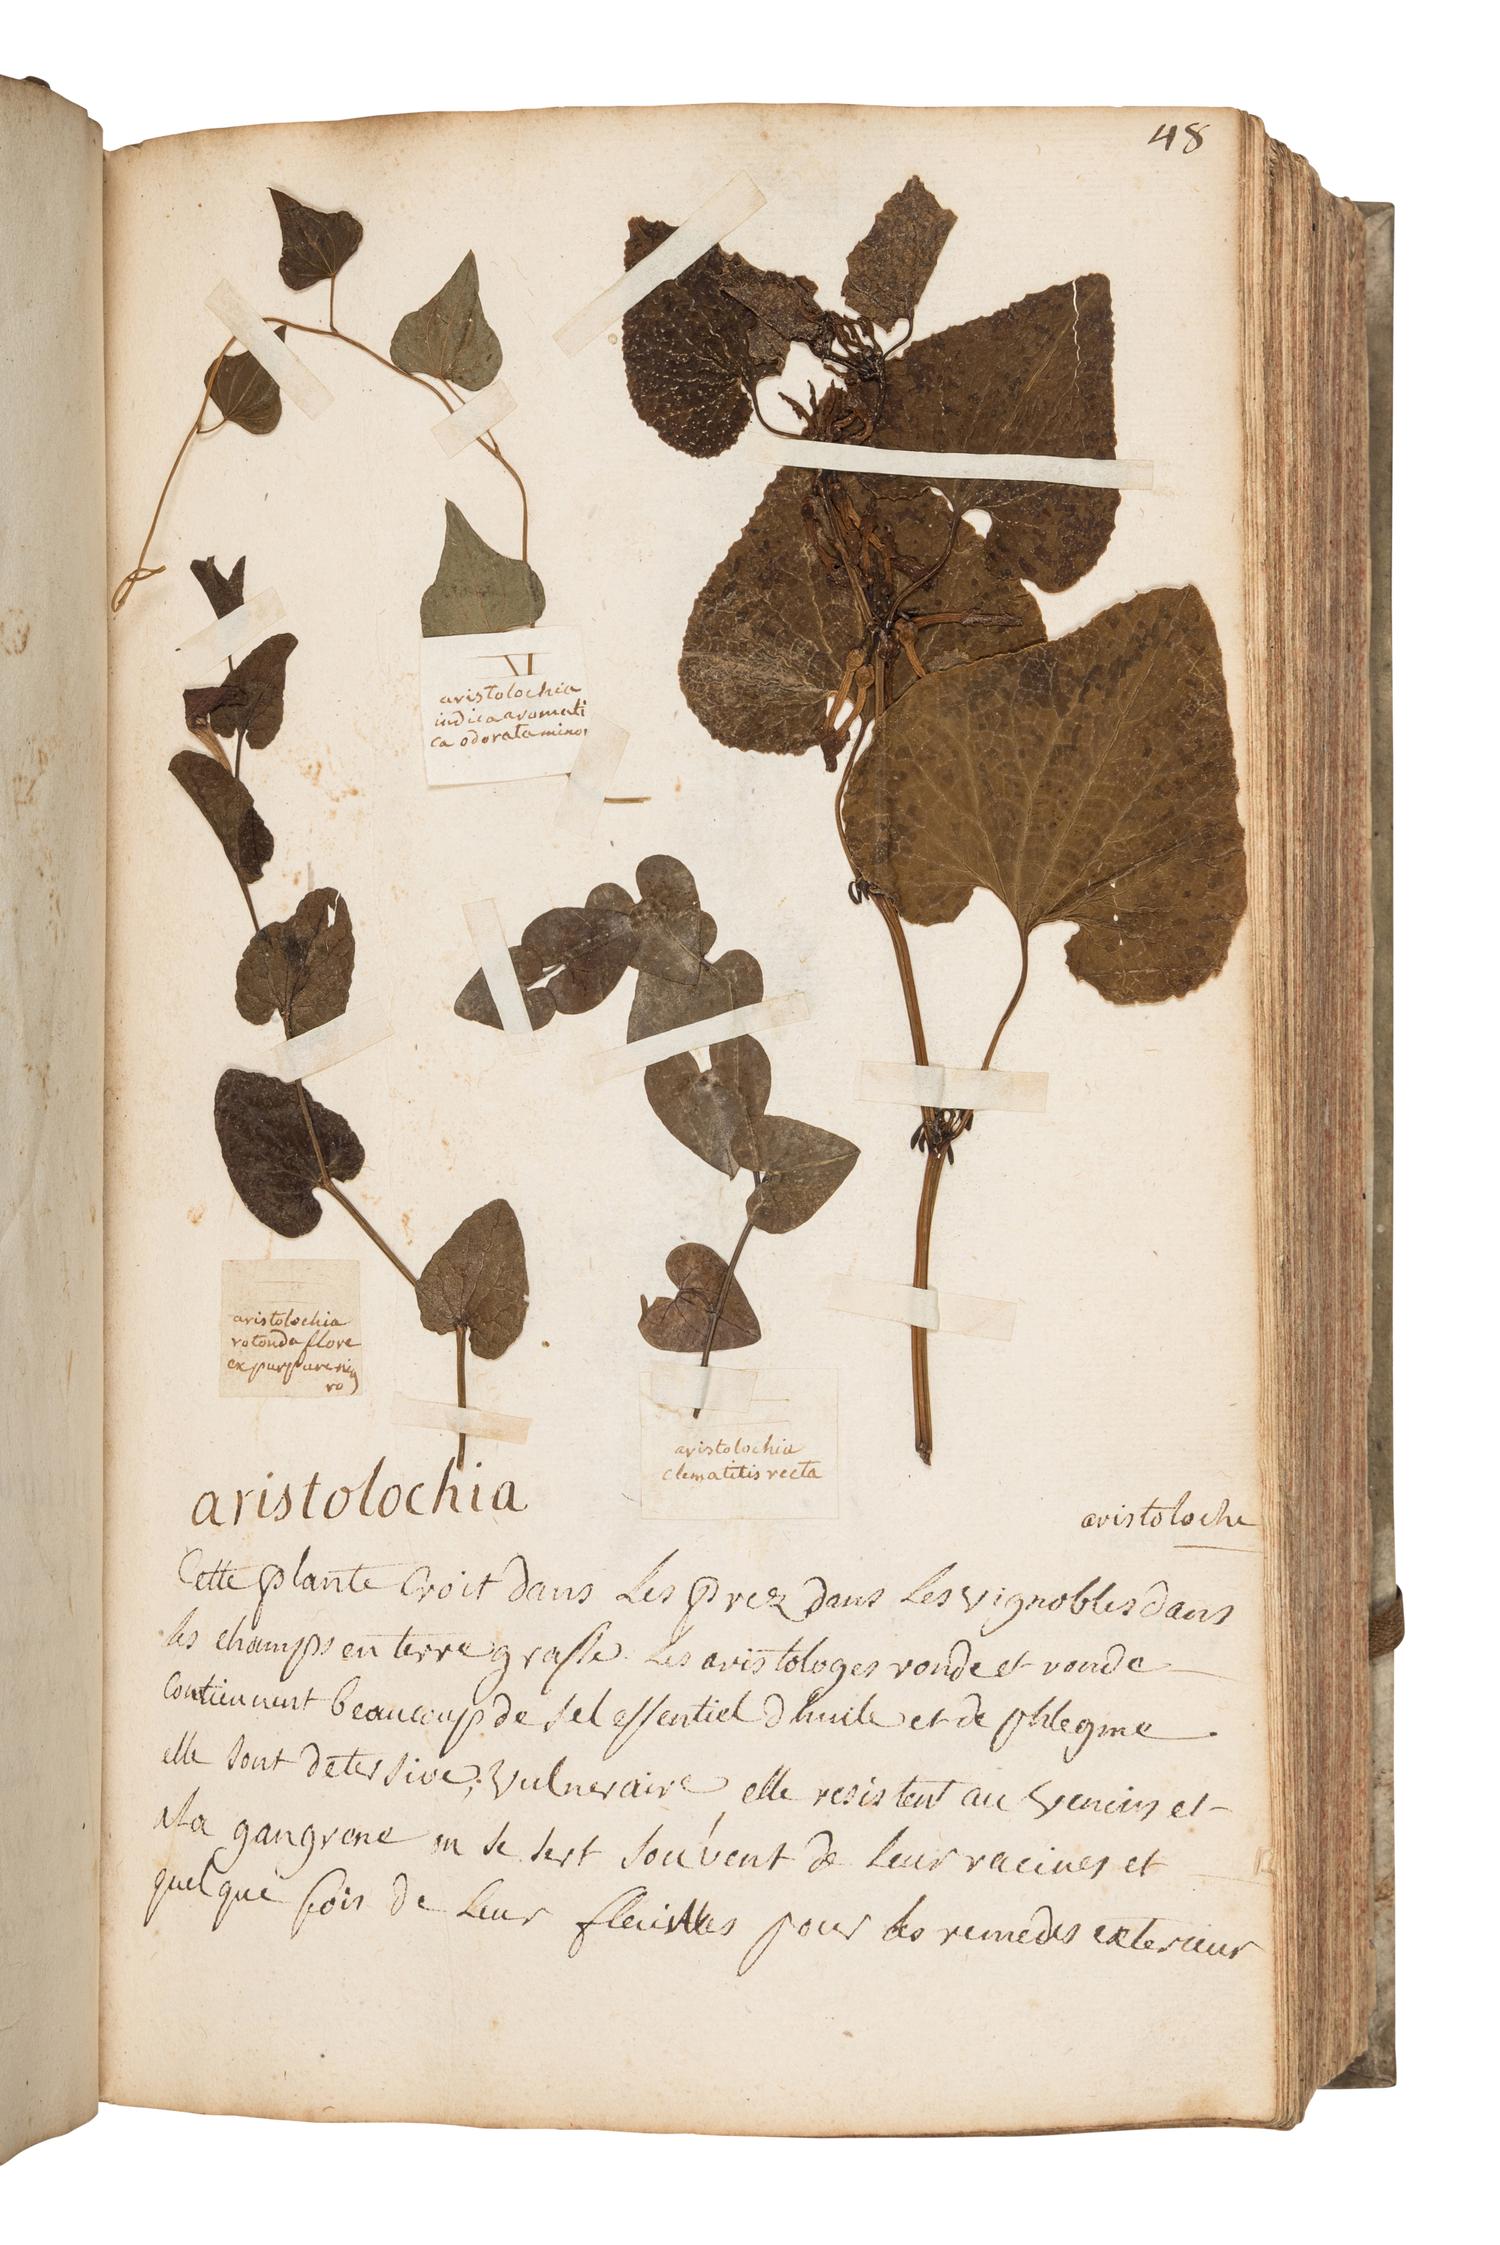 48
XI
aristolochia
indica aromati
ca odorata minor
aristolochia
rotonda flore
ex purpure nig
ro)
aristolochia
clematitis recta
aristolochia
aristoloche
Cette plante Croit dans Les prez dans Les vignobles dans
les champs en terre grasse. Les aristologes ronde et ronde
Contiennent beaucoup de sel essentiel d'huile et de phlegme.
elle sont detersive, vulneraire elle resistent au venins et
a La gangrene on se sert souvent de leur racines et
quelque fois de leur fleuilles pour les remedes exterieur